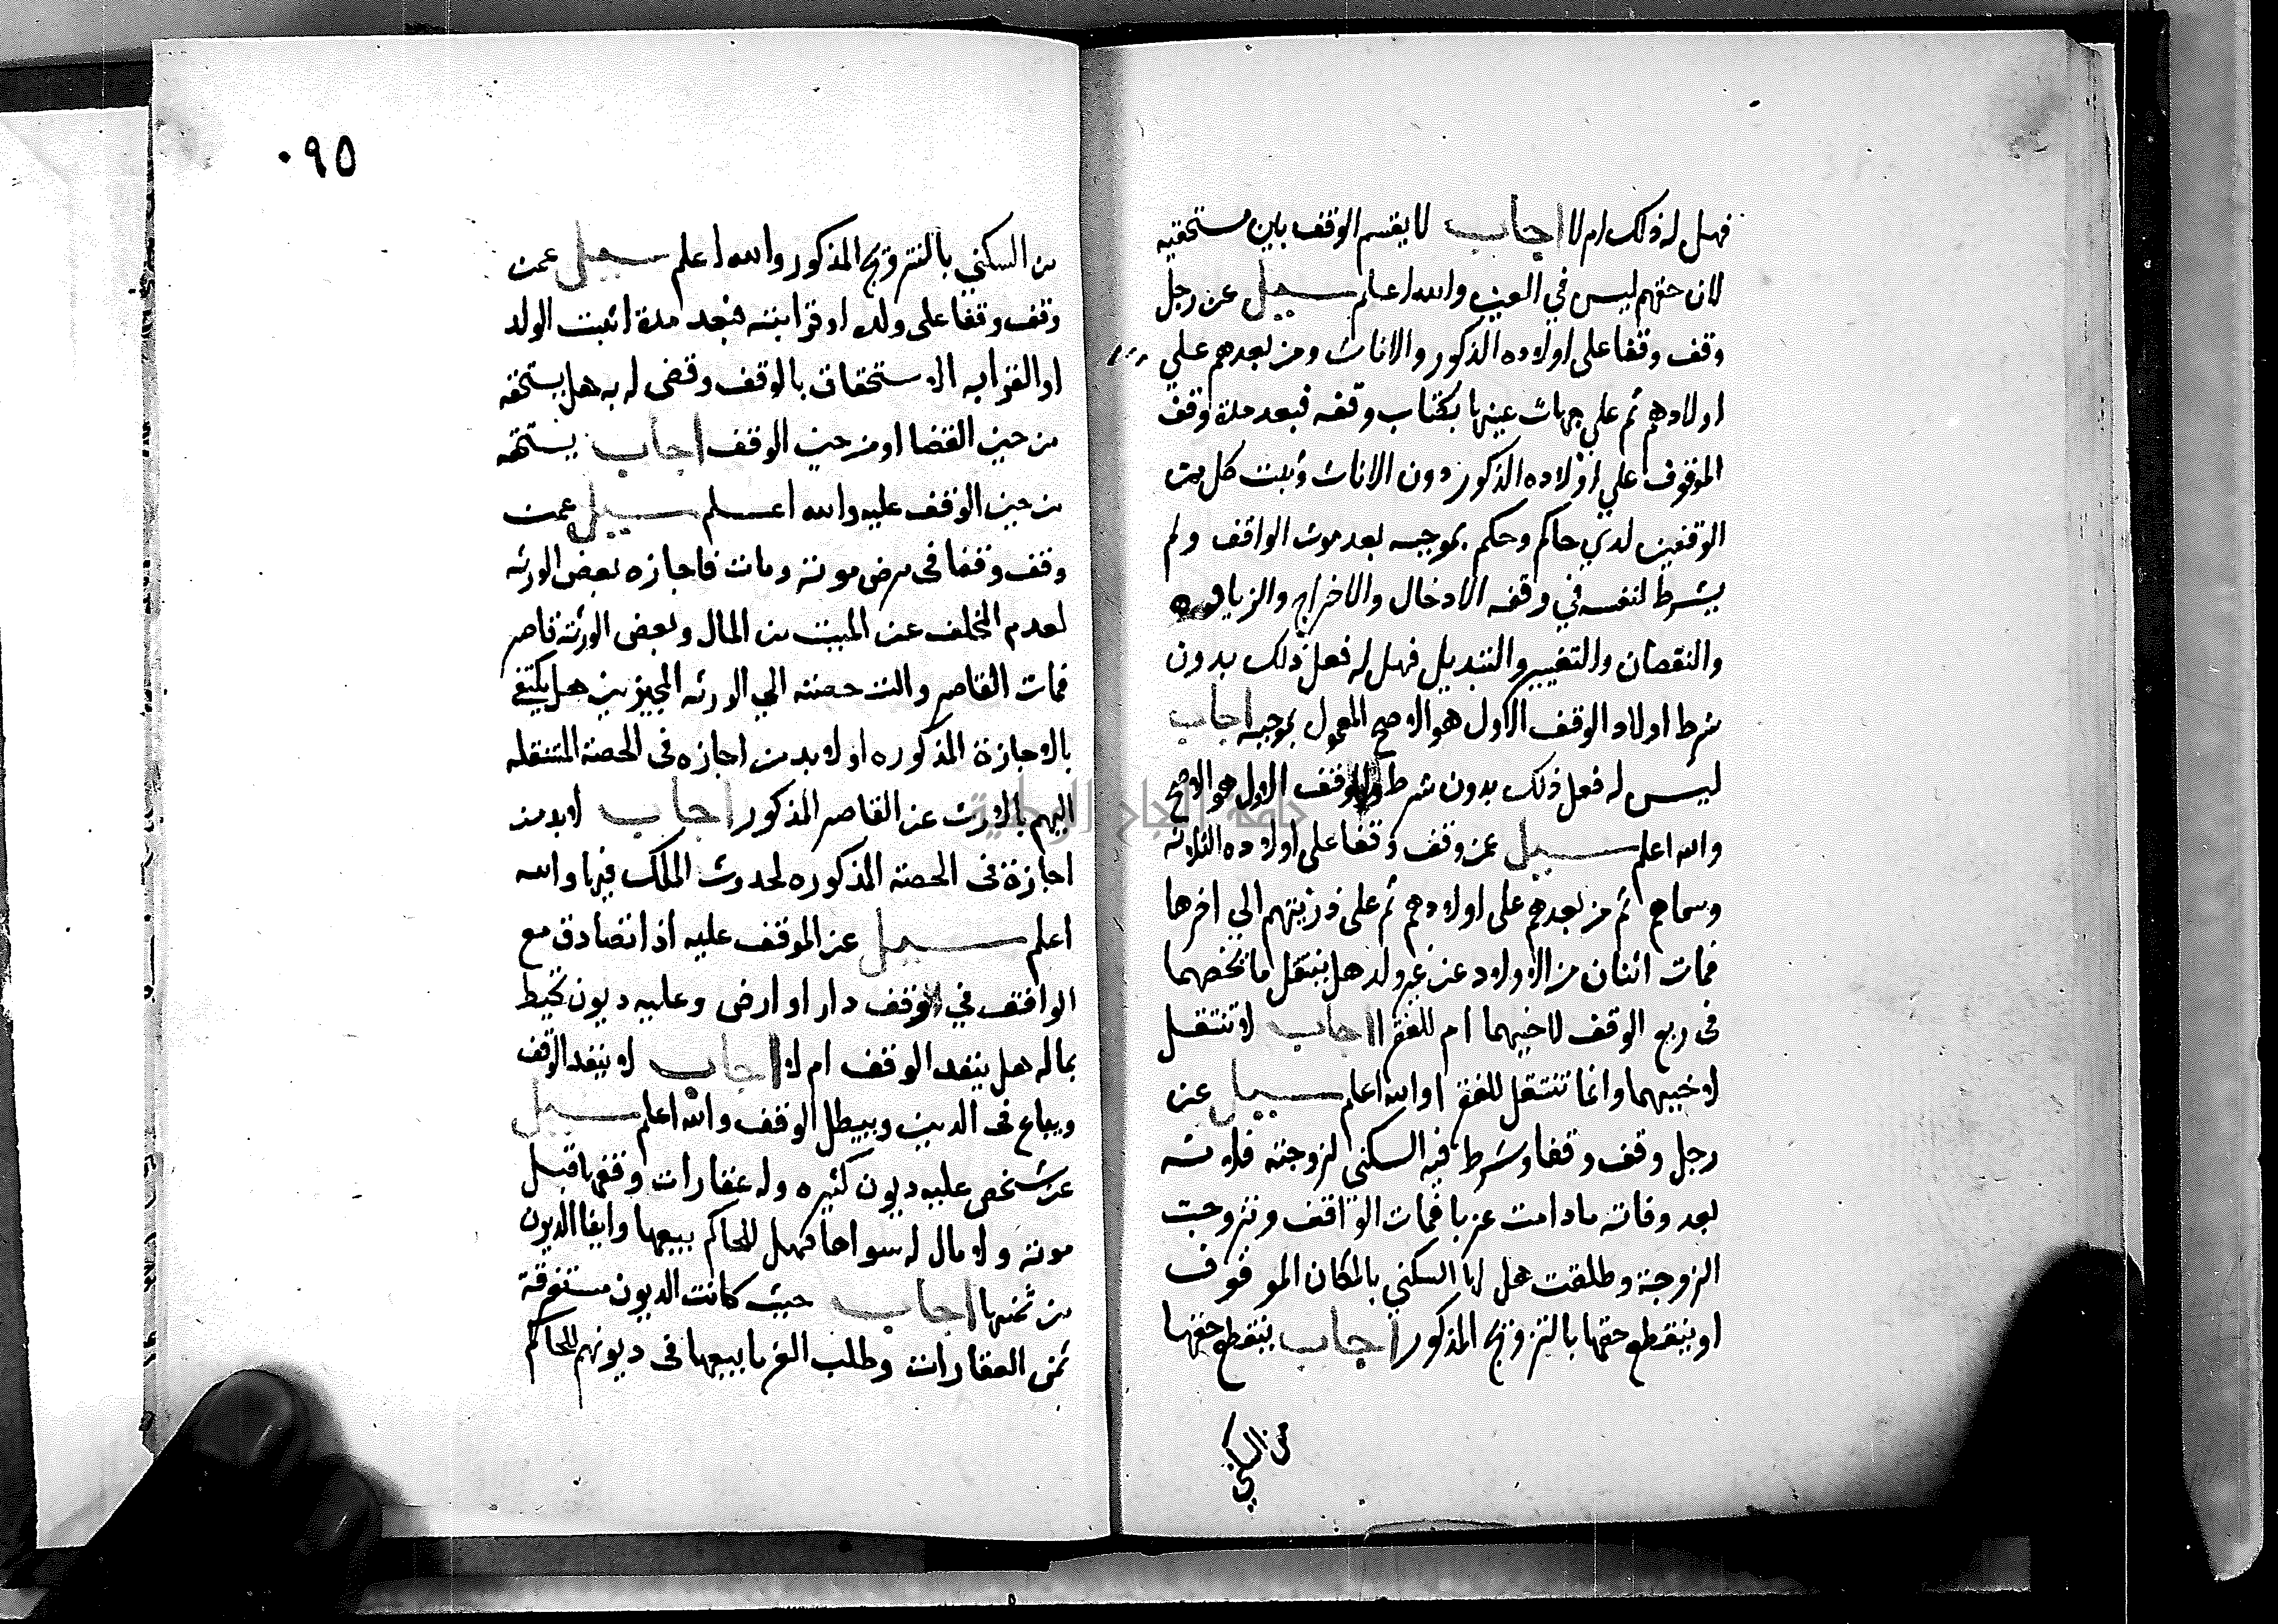 فهل له ذلك ام لا اجاب لا يقسم الوقف بين مستحقيه
لان حقهم ليس في العين والله اعلم سيل عن رجل
وقف وقفا على اولاده الذكور والاناث ومن بعدهم علي
اولادهم ثم علي جهات عينها بكتاب وقفه فبعد مدة وقف
الموقوف علي اولاده الذكور دون الاناث وثبت كل من
الوقفين لدي حاكم وحكم بموجبه بعد موت الواقف ولم
يشرط لنفسه في وقفه الادخال والاخراج والزياده
والنقصان والتغيير والتبديل فهل له فعل ذلك بدون
شرط اولا والوقف الاول هو الاصح المعمول بموجبه اجاب
ليس له فعل ذلك بدون شرط والوقف الاول هو الاصح
والله اعلم سيل عمن وقف وقفا على اولاده الثلاثه
وسماهم ثم من بعدهم على اولادهم ثم على ذريتهم الي اخرها
فمات اثنان من الاولاد عن غير ولد هل ينتقل ما يخصهما
فى ريع الوقف لاخيهما ام للفقرا اجاب لا تنتقل
لاخيهما وانما تنتقل للفقرا والله اعلم سيل عن
رجل وقف وقفا وشرط فيه السكنى لزوجته فلانه
بعد وفاته مادامت عزبا فمات الواقف وتزوجت
الزوجة وطلقت هل لها السكني بالمكان الموقوف
او ينقطع حقها بالتزويج المذكور اجاب ينقطع حقها
من السكني
٠٩٥
من السكني بالتزويج المذكور والله اعلم سيل عمن
وقف وقفا على ولده او قرابته فبعد مدة اثبت الولد
او القرابه الاستحقاق بالوقف وقضى له به هل يستحقه
من حين القضا او من حين الوقف اجاب يستحقه
من حين الوقف عليه والله اعلم سيل عمن
وقف وقفا فى مرض موته ومات فاجازه بعض الورثه
لعدم المخلف عن الميت من المال وبعض الورثة قاصر
فمات القاصر والت حصته الي الورثه المجيزين هل يكتفي
بالاجازة المذكوره او لا بد من اجازه فى الحصة المنتقله
اليهم بالارث عن القاصر المذكور اجاب لا بد من
اجازة فى الحصة المذكوره لحدوث الملك فيها والله
اعلم سيل عن الموقف عليه اذا تصادق مع
الواقف في وقف دار او ارض وعليه ديون تحيط
بماله هل ينفد الوقف ام لا اجاب لا ينفد الوقف
ويباع فى الدين ويبطل الوقف والله اعلم سيل
عن شخص عليه ديون كثيره وله عقارات وقفها قبل
موته ولا مال له سواها فهل للحاكم بيعها وايفا الديون
من ثمنها اجاب حيث كانت الديون مستغرقة
ثمن العقارات وطلب الغرما بيعها فى ديونهم للحاكم